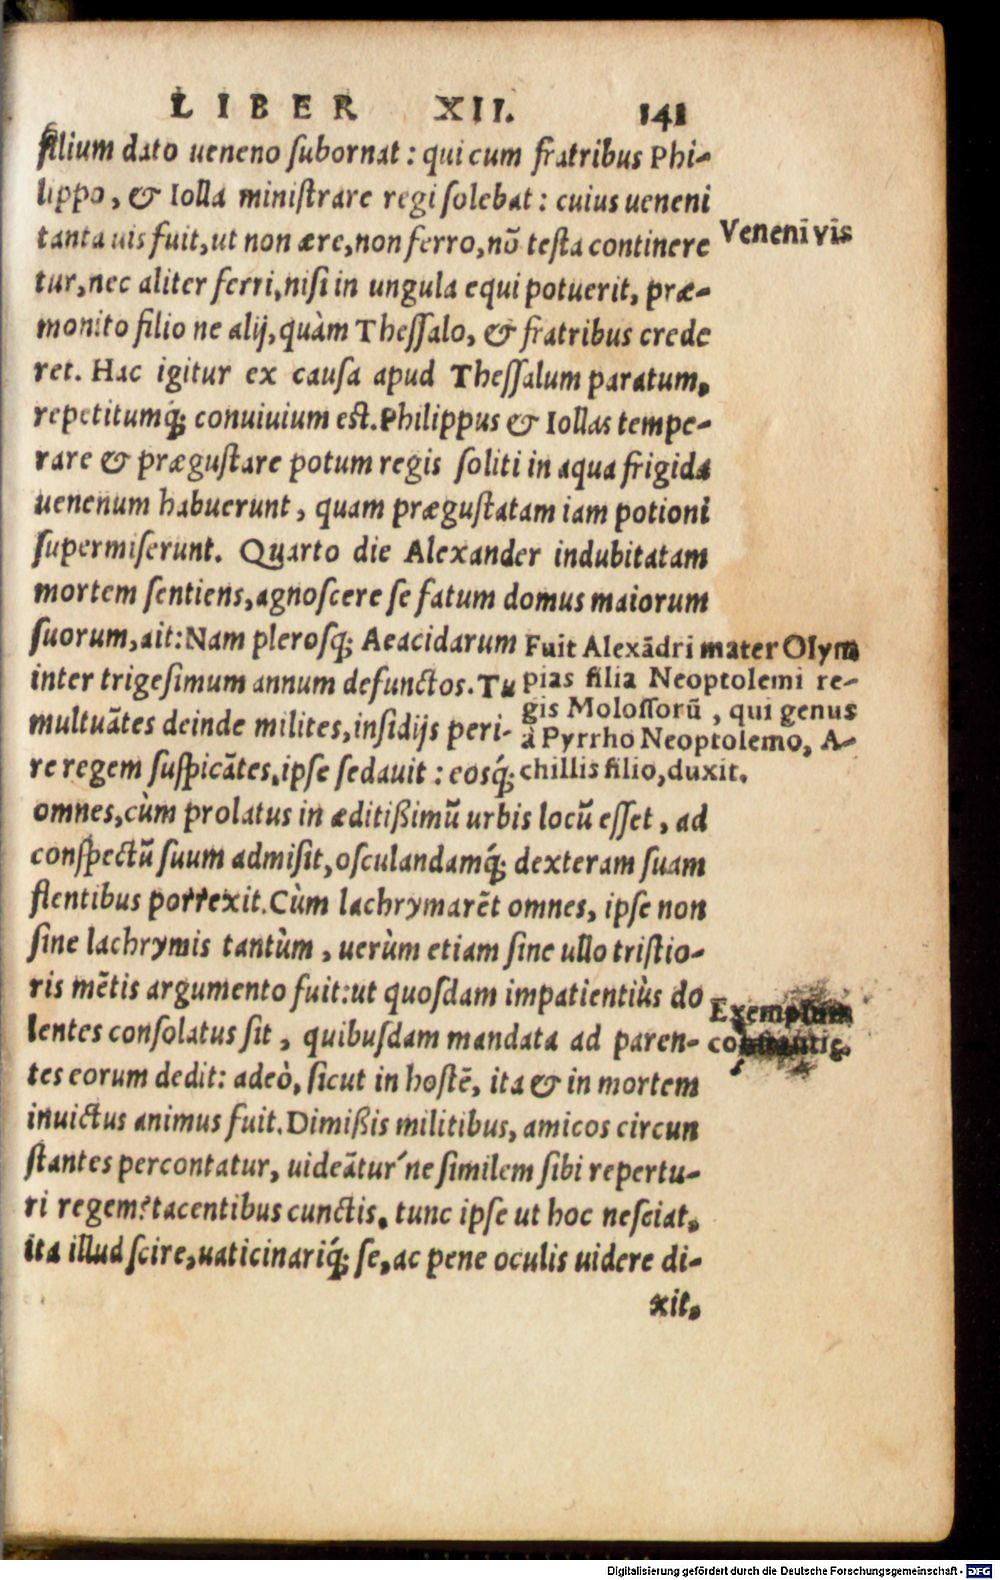 LIBER XII. 141
filium dato ueneno subornat: qui cum fratribus Phi-
lippo, & Iolla ministrare regi solebat: cuius ueneni
tanta uis fuit, ut non ære, non ferro, nō testa continere
tur, nec aliter ferri, nisi in ungula equi potuerit, præ-
monito filio ne alij, quàm Thessalo, & fratribus crede
ret. Hac igitur ex causa apud Thessalum paratum,
repetitumq́; conuiuium est. Philippus & Iollas tempe-
rare & prægustare potum regis soliti in aqua frigida
uenenum habuerunt, quam prægustatam iam potioni
supermiserunt. Quarto die Alexander indubitatam
mortem sentiens, agnoscere se fatum domus maiorum
suorum, ait: Nam plerosq; Aeacidarum
inter trigesimum annum defunctos. Tu
multuātes deinde milites, insidijs peri-
re regem suspicātes, ipse sedauit: eosq́;
omnes, cùm prolatus in æditißimū urbis locū esset, ad
conspectū suum admisit, osculandamq́; dexteram suam
flentibus porrexit. Cùm lachrymarēt omnes, ipse non
sine lachrymis tantùm, uerùm etiam sine ullo tristio-
ris mētis argumento fuit: ut quosdam impatientiùs do
lentes consolatus sit, quibusdam mandata ad paren-
tes eorum dedit: adeò, sicut in hostē, ita & in mortem
inuictus animus fuit. Dimißis militibus, amicos circun
stantes percontatur, uideātur´ne similem sibi repertu-
ri regem? tacentibus cunctis, tunc ipse ut hoc nesciat,
ita illud scire, uaticinariq́; se, ac pene oculis uidere di-
xit,
Veneni vis
Fuit Alexādri mater Olym
pias filia Neoptolemi re-
gis Molossorū, qui genus
à Pyrrho Neoptolemo, A-
chillis filio, duxit.
Exemplum
constantię.
Digitalisierung gefördert durch die Deutsche Forschungsgemeinschaft - DFG